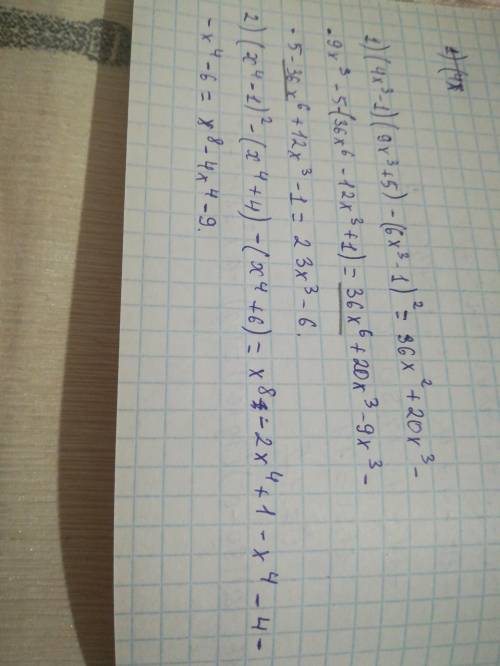 1) (4x
1) (4x³-1)(9x³+5) - (6x³-1)² = 36x² + 20x³ -
- 9x³ - 5 - (36x⁶ - 12x³ + 1) = 36x⁶ + 20x³ - 9x³ -
- 5 - 36x⁶ + 12x³ - 1 = 23x³ - 6.
2) (x⁴-1)² - (x⁴+4) - (x⁴+6) = x⁸ - 2x⁴ + 1 - x⁴ - 4 -
- x⁴ - 6 = x⁸ - 4x⁴ - 9.